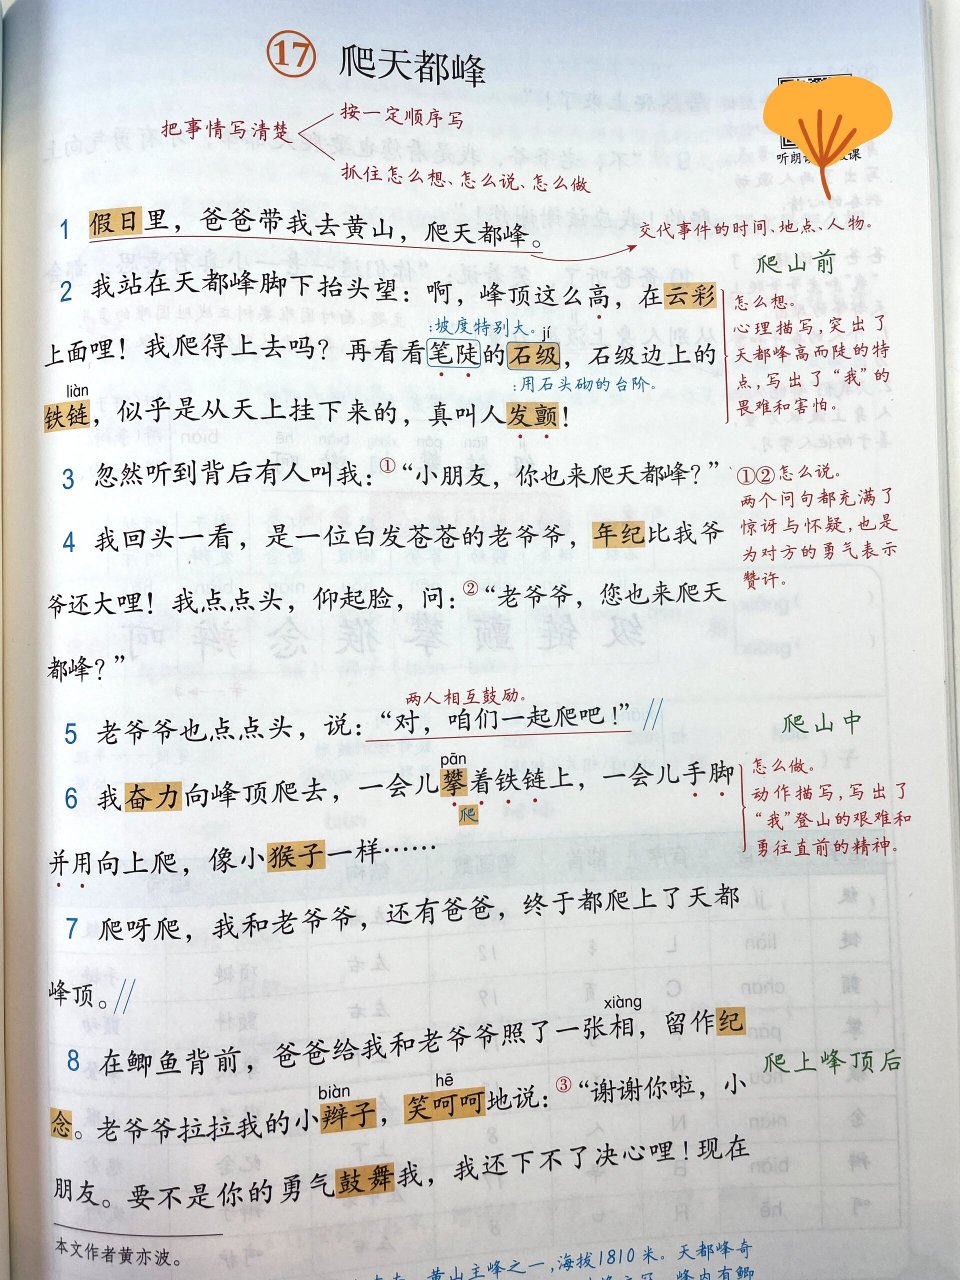 17 爬天都峰
把事情写清楚
按一定顺序写
抓住怎么想、怎么说、怎么做
1 假日里，爸爸带我去黄山，爬天都峰。
交代事件的时间、地点、人物。
爬山前
2 我站在天都峰脚下抬头望：啊，峰顶这么高，在云彩
:坡度特别大。 jí
上面哩！我爬得上去吗？再看看笔陡的石级，石级边上的
:用石头砌的台阶。
liàn
铁链，似乎是从天上挂下来的，真叫人发颤！
怎么想。
心理描写，突出了
天都峰高而陡的特
点，写出了“我”的
畏难和害怕。
3 忽然听到背后有人叫我：①“小朋友，你也来爬天都峰？”
4 我回头一看，是一位白发苍苍的老爷爷，年纪比我爷
爷还大哩！我点点头，仰起脸，问：②“老爷爷，您也来爬天
都峰？”
①②怎么说。
两个问句都充满了
惊讶与怀疑，也是
为对方的勇气表示
赞许。
两人相互鼓励。
5 老爷爷也点点头，说：“对，咱们一起爬吧！”
爬山中
pān
6 我奋力向峰顶爬去，一会儿攀着铁链上，一会儿手脚
爬
并用向上爬，像小猴子一样……
怎么做。
动作描写，写出了
“我”登山的艰难和
勇往直前的精神。
7 爬呀爬，我和老爷爷，还有爸爸，终于都爬上了天都
峰顶。
xiàng
8 在鲫鱼背前，爸爸给我和老爷爷照了一张相，留作纪
爬上峰顶后
biàn hē
念。老爷爷拉拉我的小辫子，笑呵呵地说：③“谢谢你啦，小
朋友。要不是你的勇气鼓舞我，我还下不了决心哩！现在
本文作者黄亦波。
黄山主峰之一，海拔1810米。天都峰奇